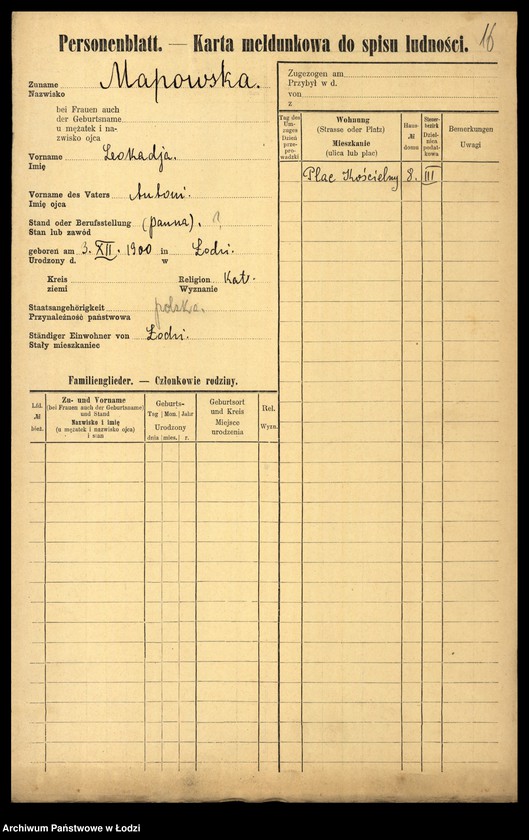 Personenblatt. — Karta meldunkowa do spisu ludności.
16
Zuname
Nazwisko
Mapowska.
bei Frauen auch
der Geburtsname
u mężatek i na-
zwisko ojca
Vorname
Imię
Leokadja.
Vorname des Vaters
Imię ojca
Antoni.
Stand oder Berufsstellung
Stan lub zawód
(panna). ?
geboren am 3. XII. 1900 in Łodzi.
Urodzony d. w
Kreis
ziemi
Religion
Wyznanie
Kat.
Staatsangehörigkeit
Przynależność państwowa
polska.
Ständiger Einwohner von
Stały mieszkaniec
Łodzi.
Familienglieder. — Członkowie rodziny.
Lfd.
№
bież.
Zu- und Vorname
(bei Frauen auch der Geburtsname)
und Stand
Nazwisko i imię
(u mężatek i nazwisko ojca)
i stan
Geburts-
Tag Mon. Jahr
Urodzony
dnia mies. r.
Geburtsort
und Kreis
Miejsce
urodzenia
Rel.
Wyzn.
Zugezogen am
Przybył w d.
von
z
Tag des
Um-
zuges
Dzień
prze-
pro-
wadzki
Wohnung
(Strasse oder Platz)
Mieszkanie
(ulica lub plac)
Haus-
№
domu
Steuer-
bezirk
Dziel-
nica
podat-
kowa
Bemerkungen
Uwagi
Plac Kościelny 8. III
Archiwum Państwowe w Łodzi